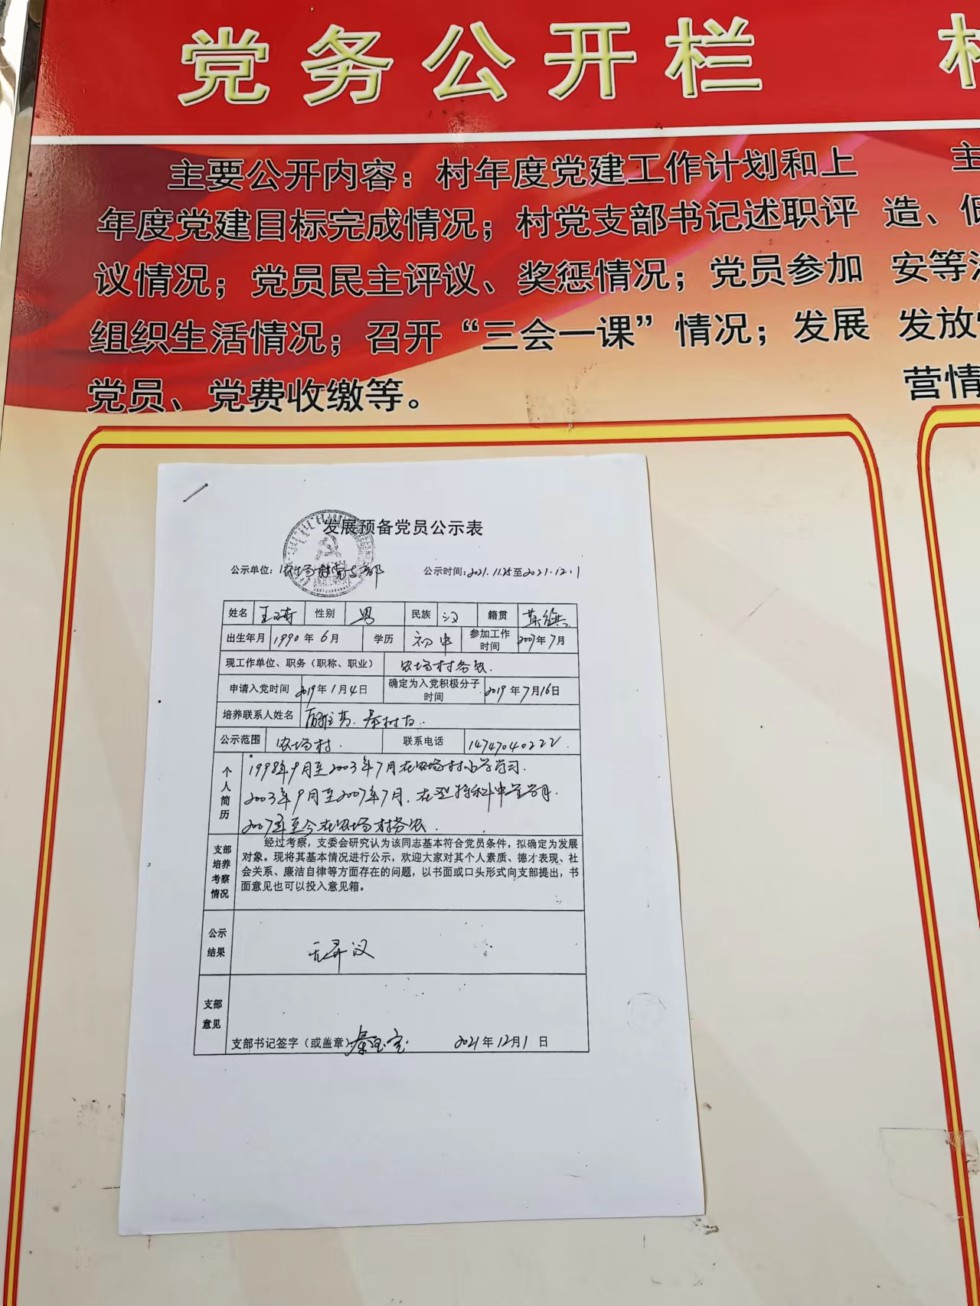 党务公开栏
村
主要公开内容：村年度党建工作计划和上
年度党建目标完成情况；村党支部书记述职评
议情况；党员民主评议、奖惩情况；党员参加
组织生活情况；召开“三会一课”情况；发展
党员、党费收缴等。
主
造、
安等
发放
营情
发展预备党员公示表
公示单位：农场村党支部 公示时间：2021.11.25至2021.12.1
姓名 王 性别 男 民族 汉 籍贯
出生年月 1990年6月 学历 初中 参加工作时间 2007年7月
现工作单位、职务（职称、职业） 农场村务农.
申请入党时间 2019年1月4日 确定为入党积极分子时间 2019年7月16日
培养联系人姓名
公示范围 农场村. 联系电话 14747040222.
个人简历
1998年9月至2003年7月在农场村小学学习.
2003年9月至2007年7月.在 中学学习.
2007年至今在农场村务农.
支部培养考察情况
经过考察，支委会研究认为该同志基本符合党员条件，拟确定为发展
对象。现将其基本情况进行公示，欢迎大家对其个人素质、德才表现、社
会关系、廉洁自律等方面存在的问题，以书面或口头形式向支部提出，书
面意见也可以投入意见箱。
公示结果 无异议
支部意见
支部书记签字（或盖章） 2021年12月1日